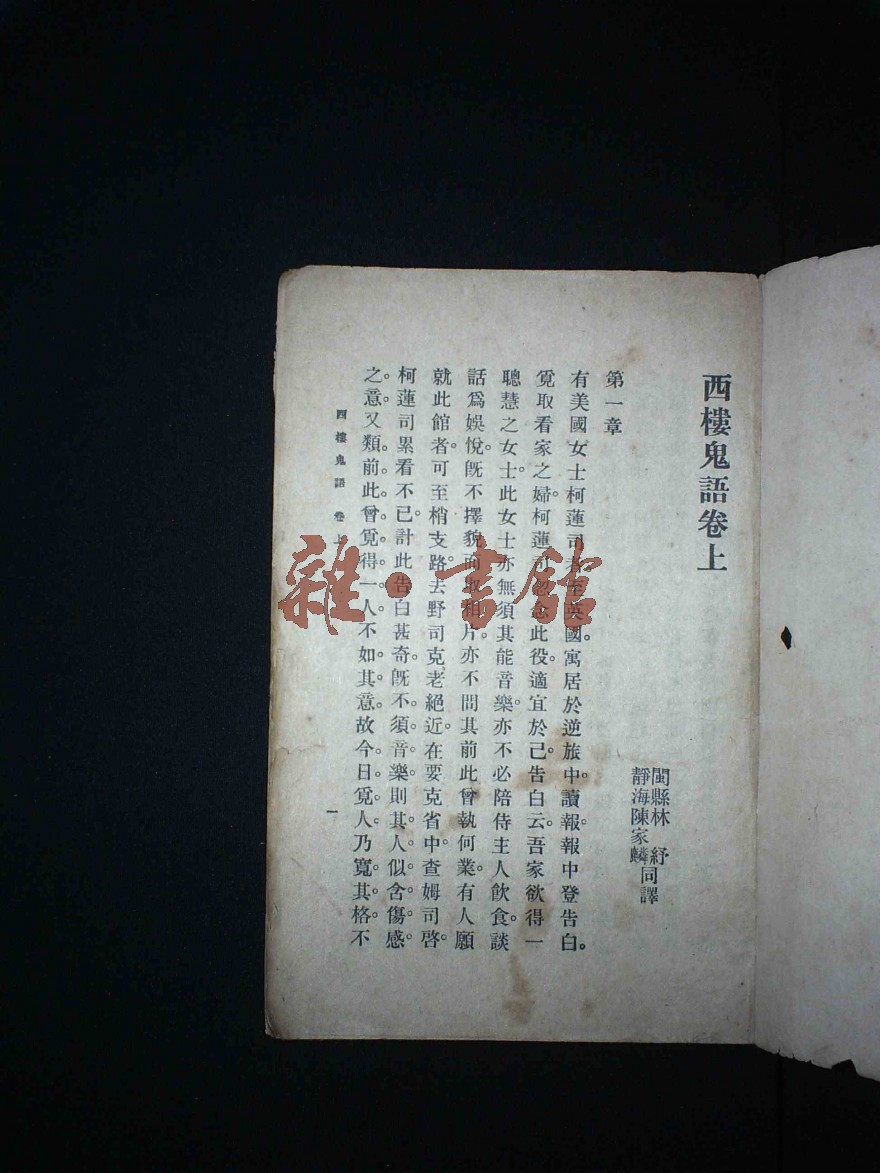 西樓鬼語卷上
閩縣林 紓同譯
靜海陳家麟
第一章
有美國女士柯蓮司者至英國。寓居於逆旅中。讀報。報中登告白。
覓取看家之婦。柯蓮司念此役適宜於己。告白云。吾家欲得一
聰慧之女士。此女士亦無須其能音樂。亦不必陪侍主人飲食。談
話爲娛悅。旣不擇貌而取相片。亦不問其前此曾執何業。有人願
就此館者。可至梢支路。去野司克老絕近。在要克省中。查姆司啓。
柯蓮司累看不已。計此告白甚奇。旣不須音樂。則其人似含傷感
之意。又類前此曾覓得一人。不如其意。故今日覓人。乃寬其格。不
西樓鬼語 卷上
一
雜·書館